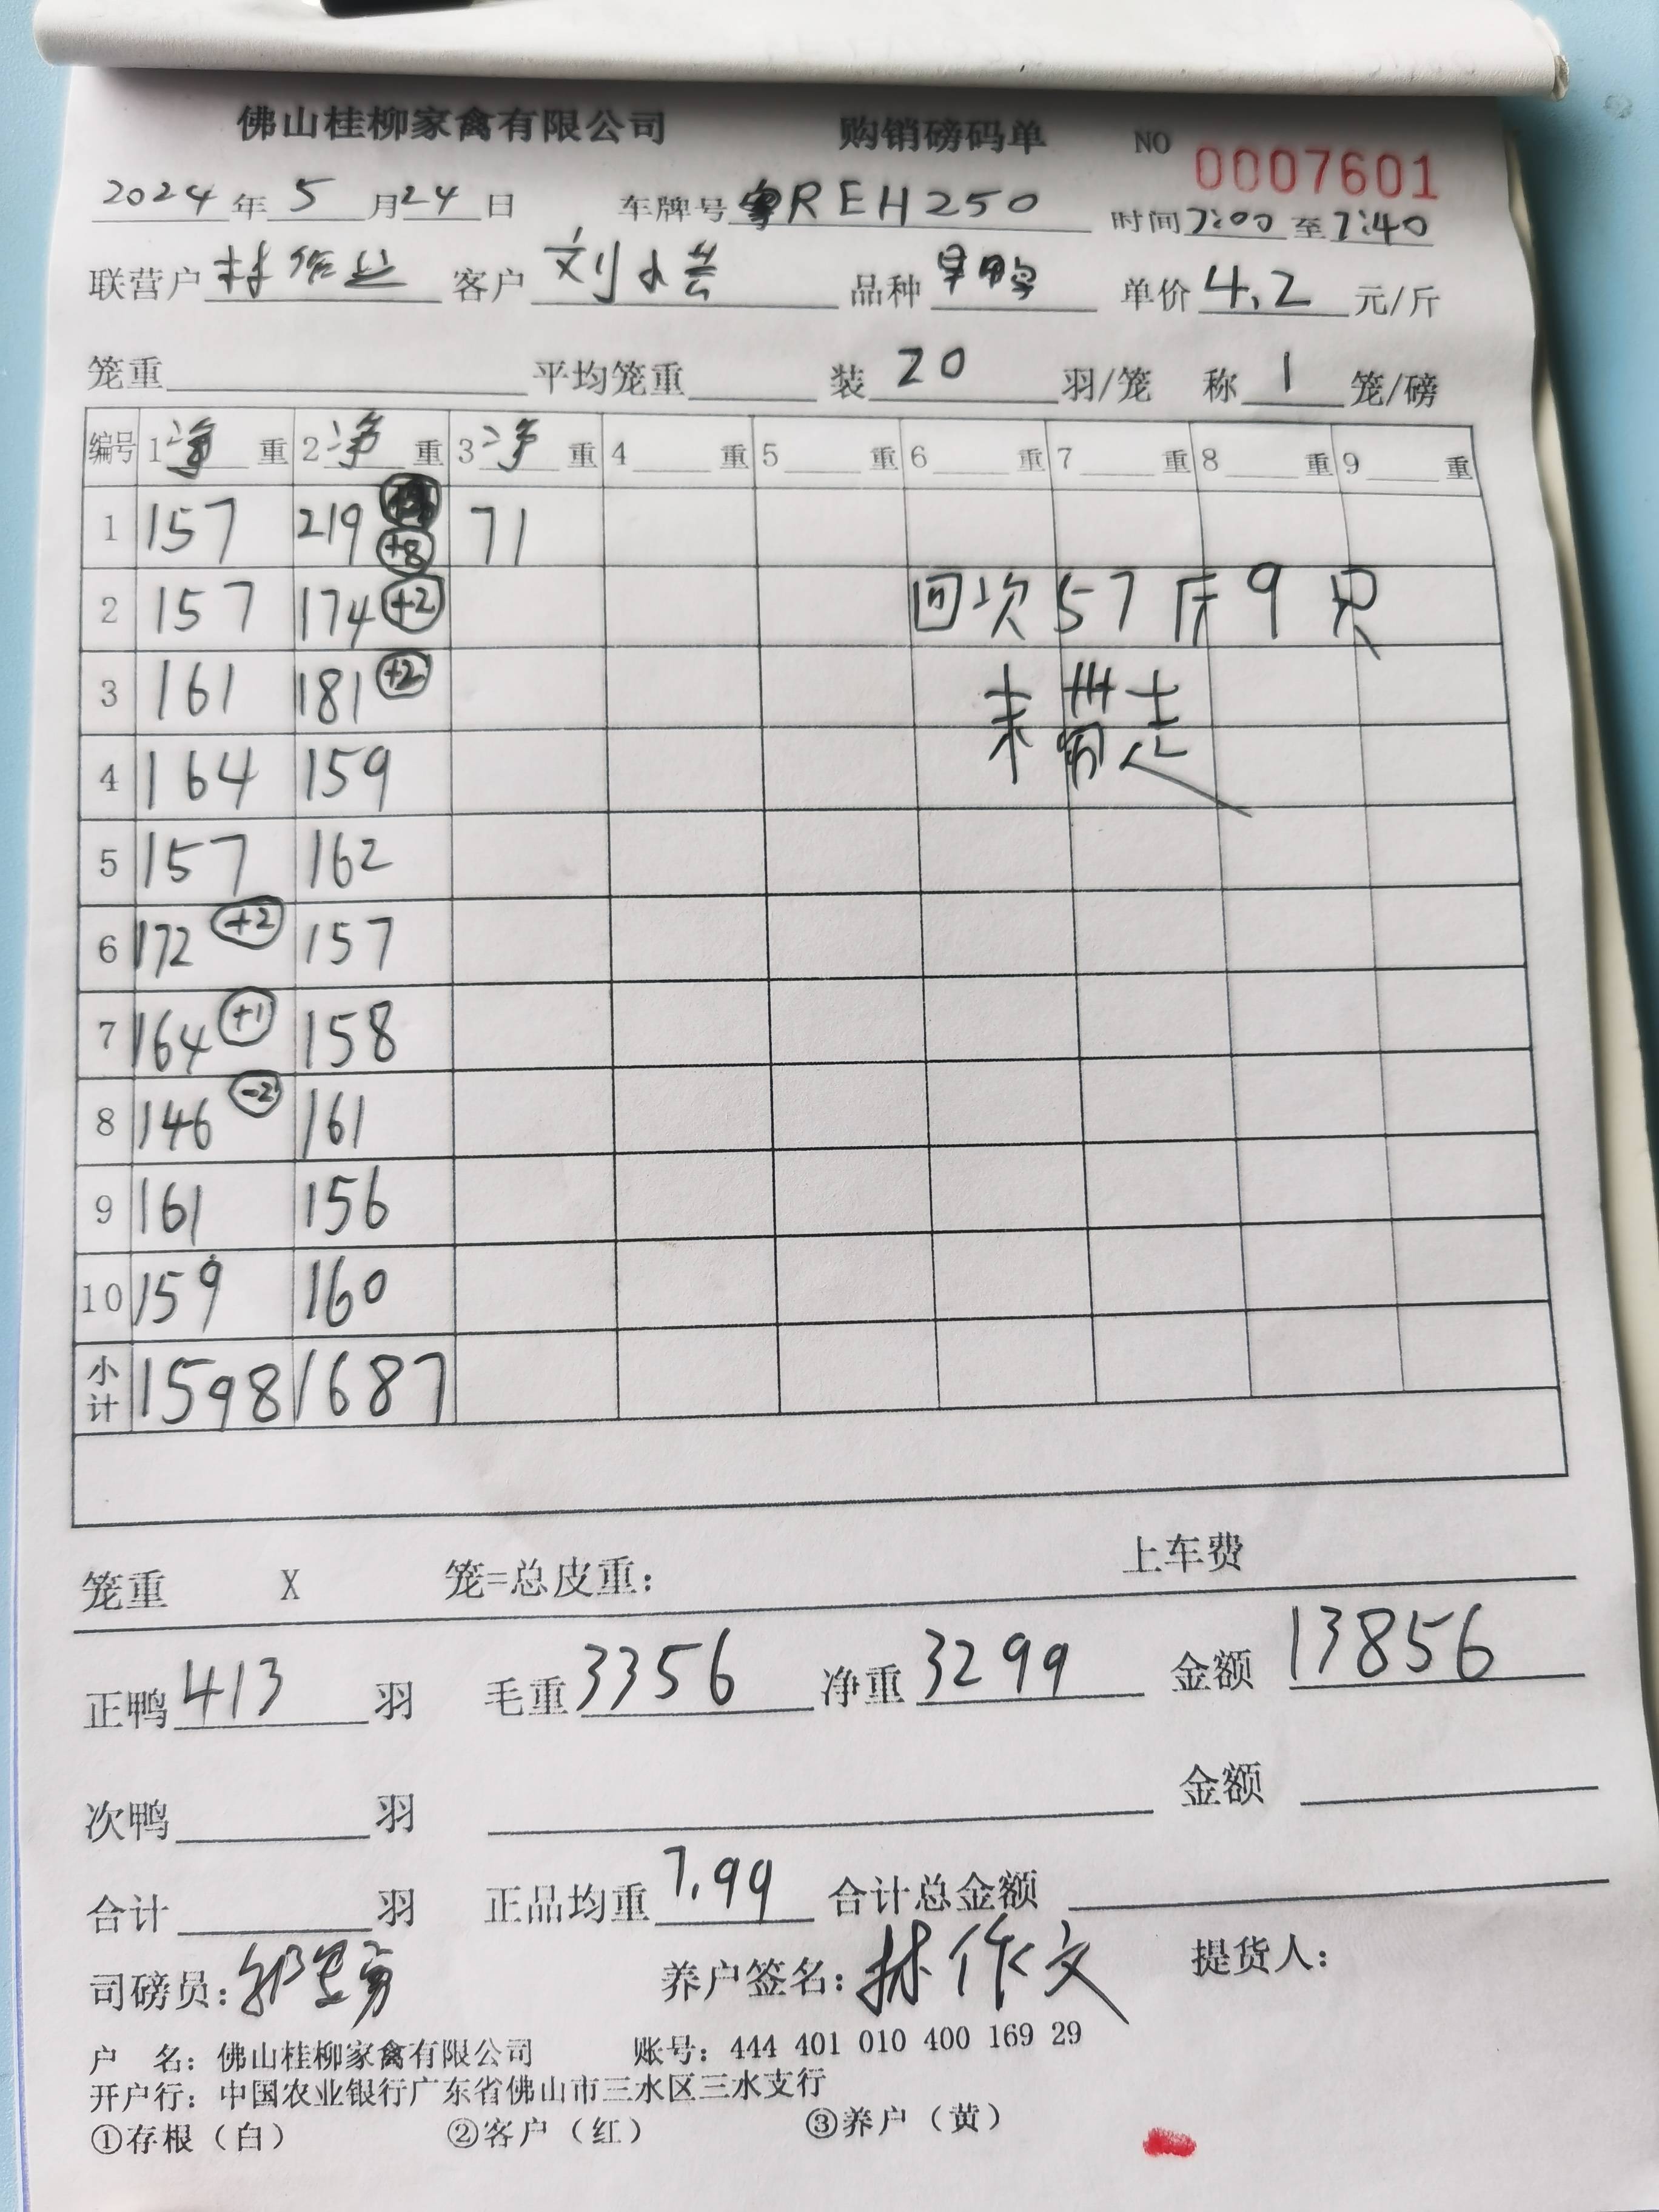 佛山桂柳家禽有限公司 购销磅码单 NO 0007601
2024年5月24日 车牌号粤REH250 时间7:00至7:40
联营户 林作 客户 刘小芸 品种 旱鸭 单价4.2元/斤
笼重 平均笼重 装20羽/笼 称1笼/磅
编号 1净重 2净重 3净重 4重 5重 6重 7重 8重 9重
1 157 219 +8 71
2 157 174 +2 回次57斤9只
3 161 181 +2 未带走
4 164 159
5 157 162
6 172 +2 157
7 164 +1 158
8 146 -2 161
9 161 156
10 159 160
小计 1598 1687
笼重 X 笼=总皮重: 上车费
正鸭413羽 毛重3356 净重3299 金额13856
次鸭 羽 金额
合计 羽 正品均重7.99 合计总金额
司磅员: 养户签名:林作文 提货人:
户 名: 佛山桂柳家禽有限公司 账号: 444 401 010 400 169 29
开户行: 中国农业银行广东省佛山市三水区三水支行
①存根（白） ②客户（红） ③养户（黄）